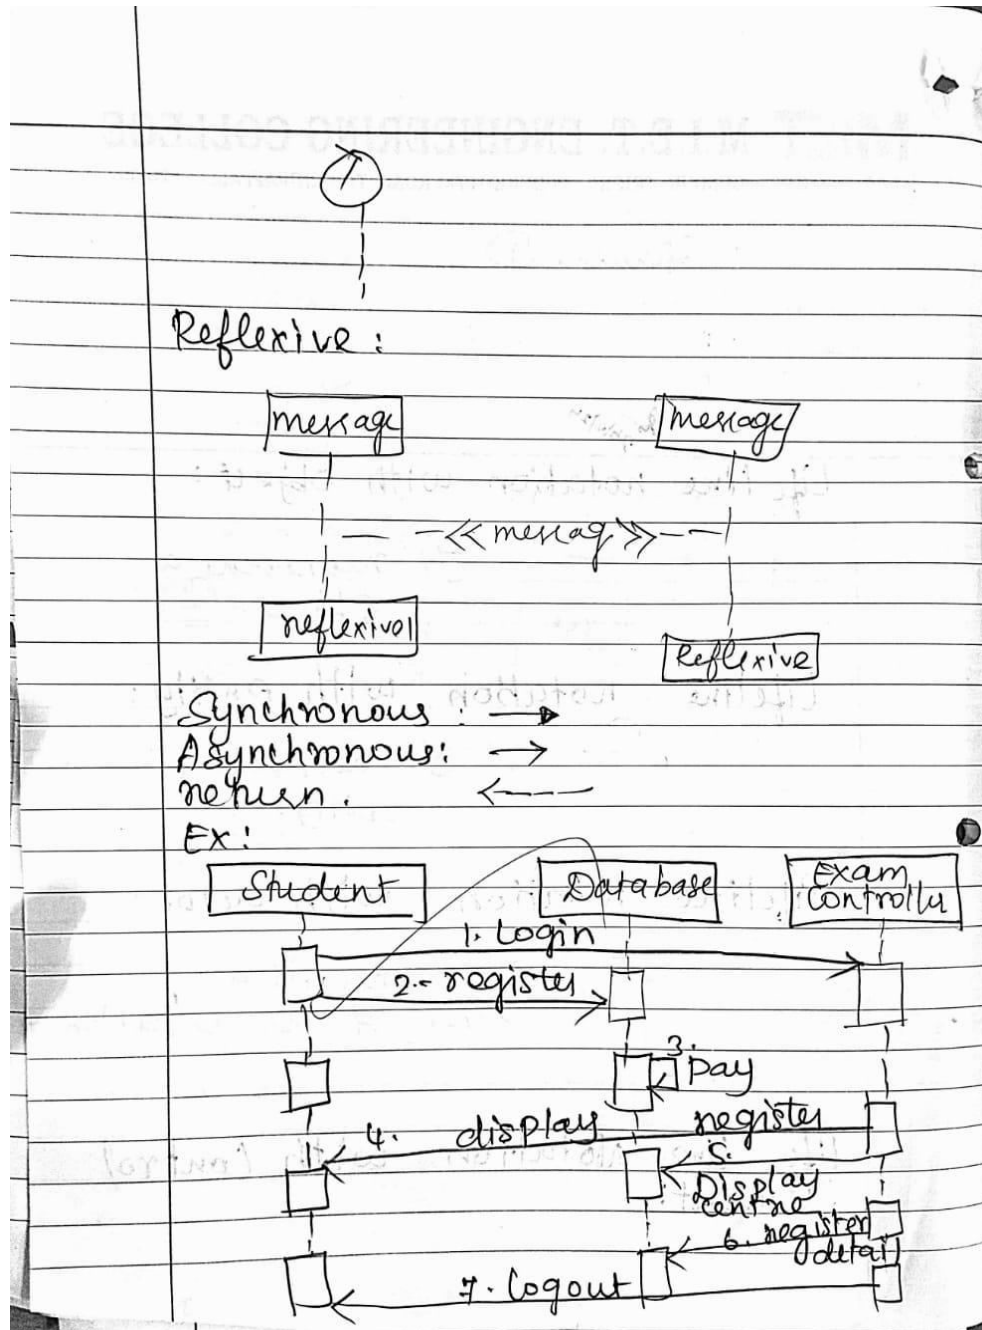 Reflexive :
message message
<< messag >>
reflexive Reflexive
Synchronous :
Asynchronous:
return .
Ex :
Student Database Exam
Controller
1. Login
2. register
3.
pay
4. display register
5.
Display
centre
6. register
detail
7. Logout